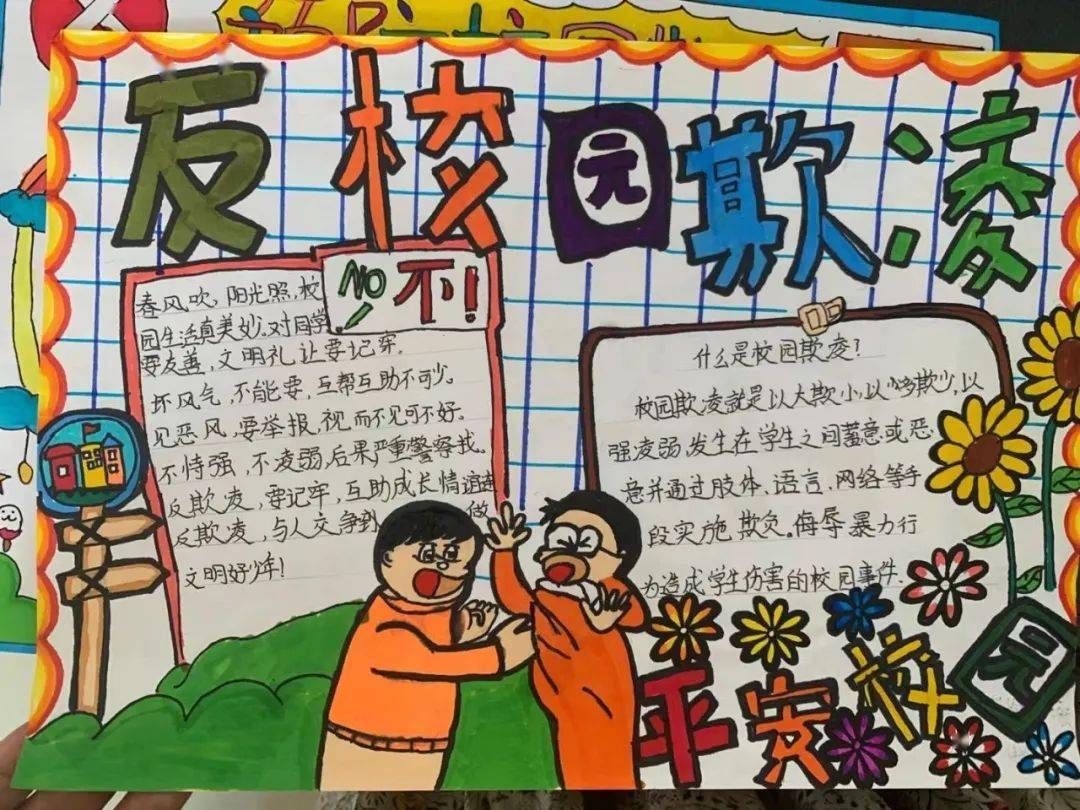 反校园欺凌
NO 不!
春风吹,阳光照,校
园生活真美妙.对同学
要友善,文明礼让要记牢.
坏风气,不能要,互帮互助不可少。
见恶风,要举报,视而不见可不好。
不恃强,不凌弱,后果严重警察找。
反欺凌,要记牢,互助成长情谊
反欺凌,与人交争到 做
文明好少年!
什么是校园欺凌?
校园欺凌就是以大欺小,以多欺少,以
强凌弱,发生在学生之间蓄意或恶
意并通过肢体、语言、网络等手
段实施欺负。侮辱暴力行
为造成学生伤害的校园事件.
平安校园